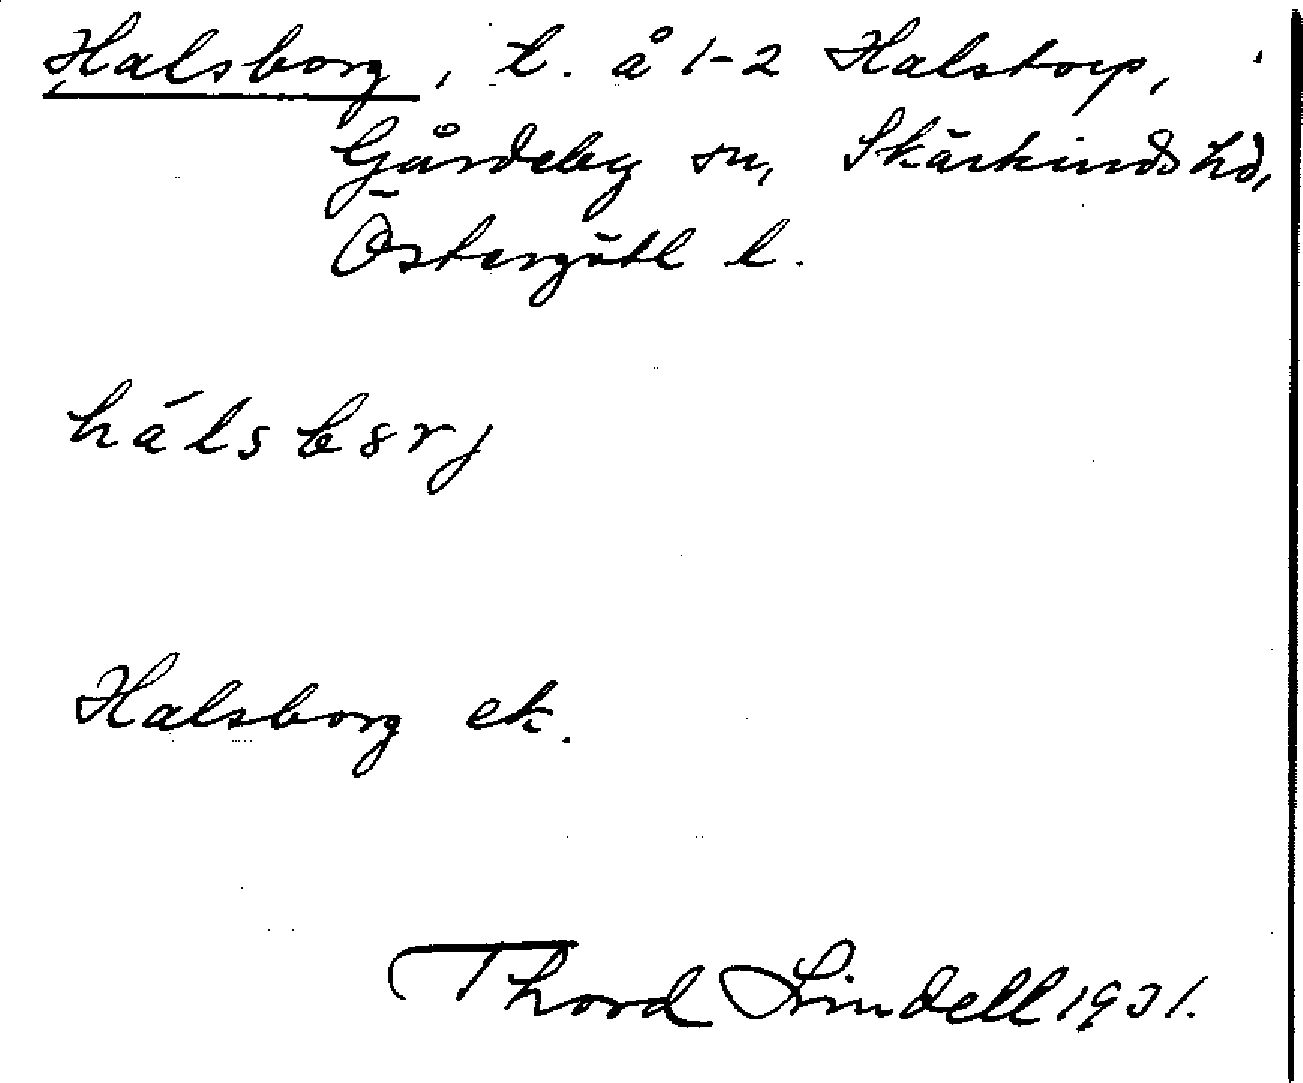 Halsborg, t. å 1-2 Halstorp,
Gårdeby sn, Skärkinds hd,
Östergötl l.
hálsbsrj
Halsborg ek.
Thord Lindell 1931.